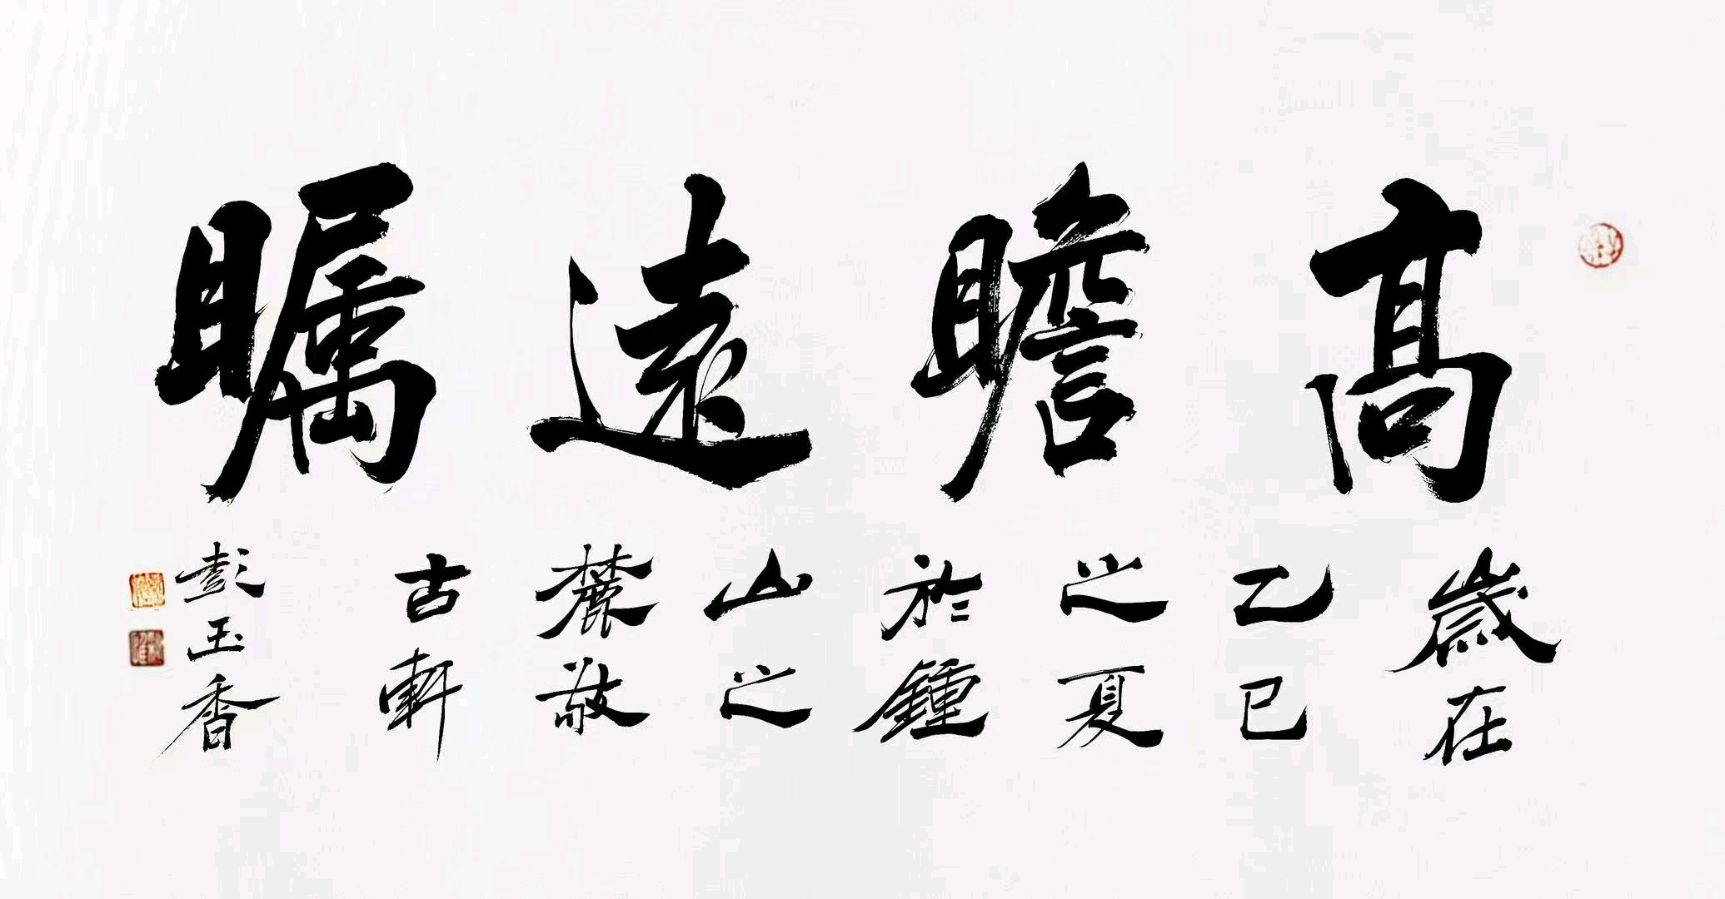 高瞻遠矚
歲在
乙巳
之夏
於鍾
山之
麓敬
古軒
彭玉香